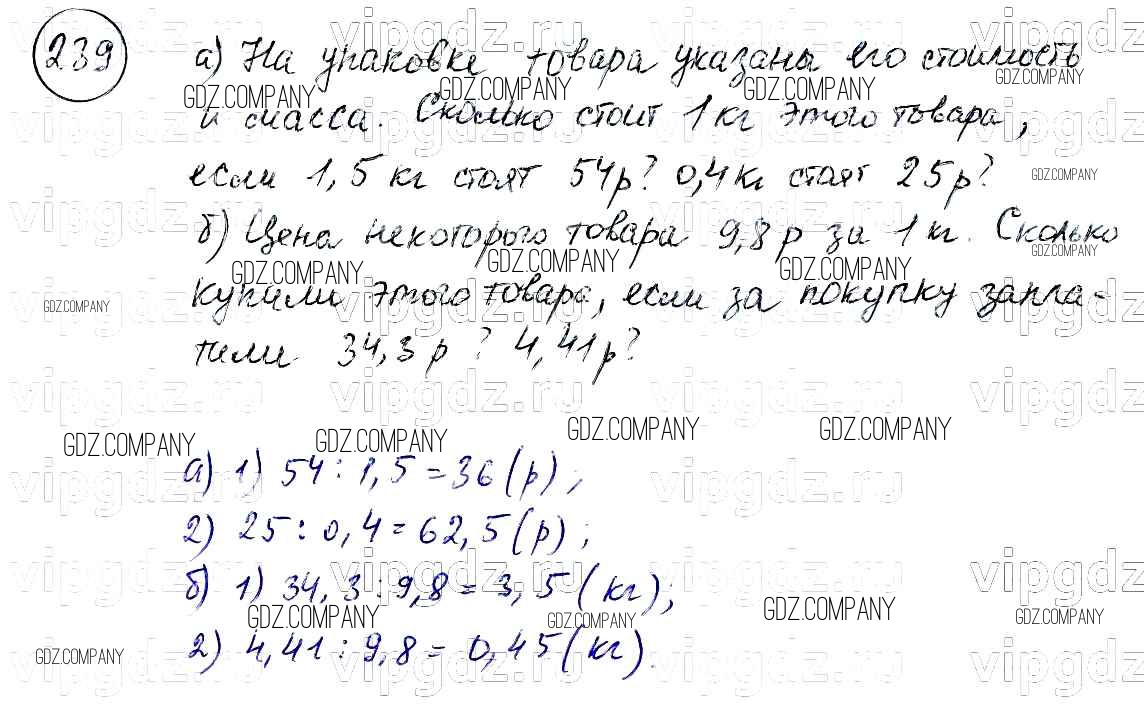 239
а) На упаковке товара указаны его стоимость
и масса. Сколько стоит 1 кг этого товара,
если 1,5 кг стоят 54 р? 0,4 кг стоят 25 р?
б) Цена некоторого товара 9,8 р за 1 кг. Сколько
купили этого товара, если за покупку запла-
тили 34,3 р? 4,41 р?
а) 1) 54 : 1,5 = 36 (р);
2) 25 : 0,4 = 62,5 (р);
б) 1) 34,3 : 9,8 = 3,5 (кг);
2) 4,41 : 9,8 = 0,45 (кг).
vipgdz.ru
GDZ.COMPANY